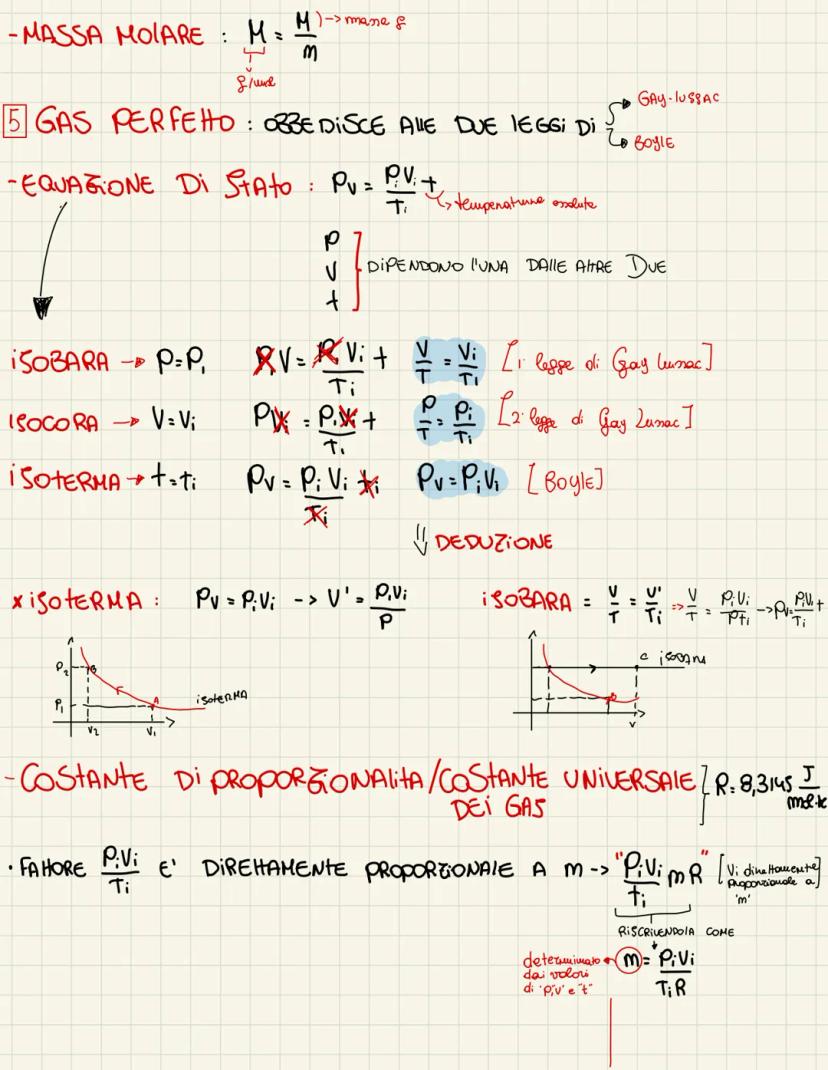 - MASSA MOLARE : M = M/m -> massa g
g/mol
5 GAS PERFETTO : OBBEDISCE ALLE DUE LEGGI DI
GAY-LUSSAC
BOYLE
- EQUAZIONE DI STATO : PV = PiVi/Ti t
temperatura assoluta
P
V
t
DIPENDONO L'UNA DALLE ALTRE DUE
ISOBARA -> P=Pi PiV = PiVi/Ti t V/T = Vi/Ti [1ª legge di Gay Lussac]
ISOCORA -> V=Vi PVi = PiVi/Ti t P/T = Pi/Ti [2ª legge di Gay Lussac]
ISOTERMA -> t=ti PV = PiVi/Ti ti PV=PiVi [BOYLE]
⇓ DEDUZIONE
x ISOTERMA : PV = PiVi -> V' = PiVi/P
ISOBARA = V/T = V'/Ti => V/T = PiVi/Pti -> PV=PiVi/Ti t
P2 B
P1 A ISOTERMA
V2 V1
C ISOBARA
V
- COSTANTE DI PROPORZIONALITA/COSTANTE UNIVERSALE DEI GAS ] R=8,3145 J/mol·k
· FATTORE PiVi/Ti E' DIRETTAMENTE PROPORZIONALE A m -> "PiVi/ti mR" [Vi direttamente proporzionale a 'm'
RISCRIVENDOLA COME
m = PiVi/TiR
determinato
dai valori
di "P,V" e "t"